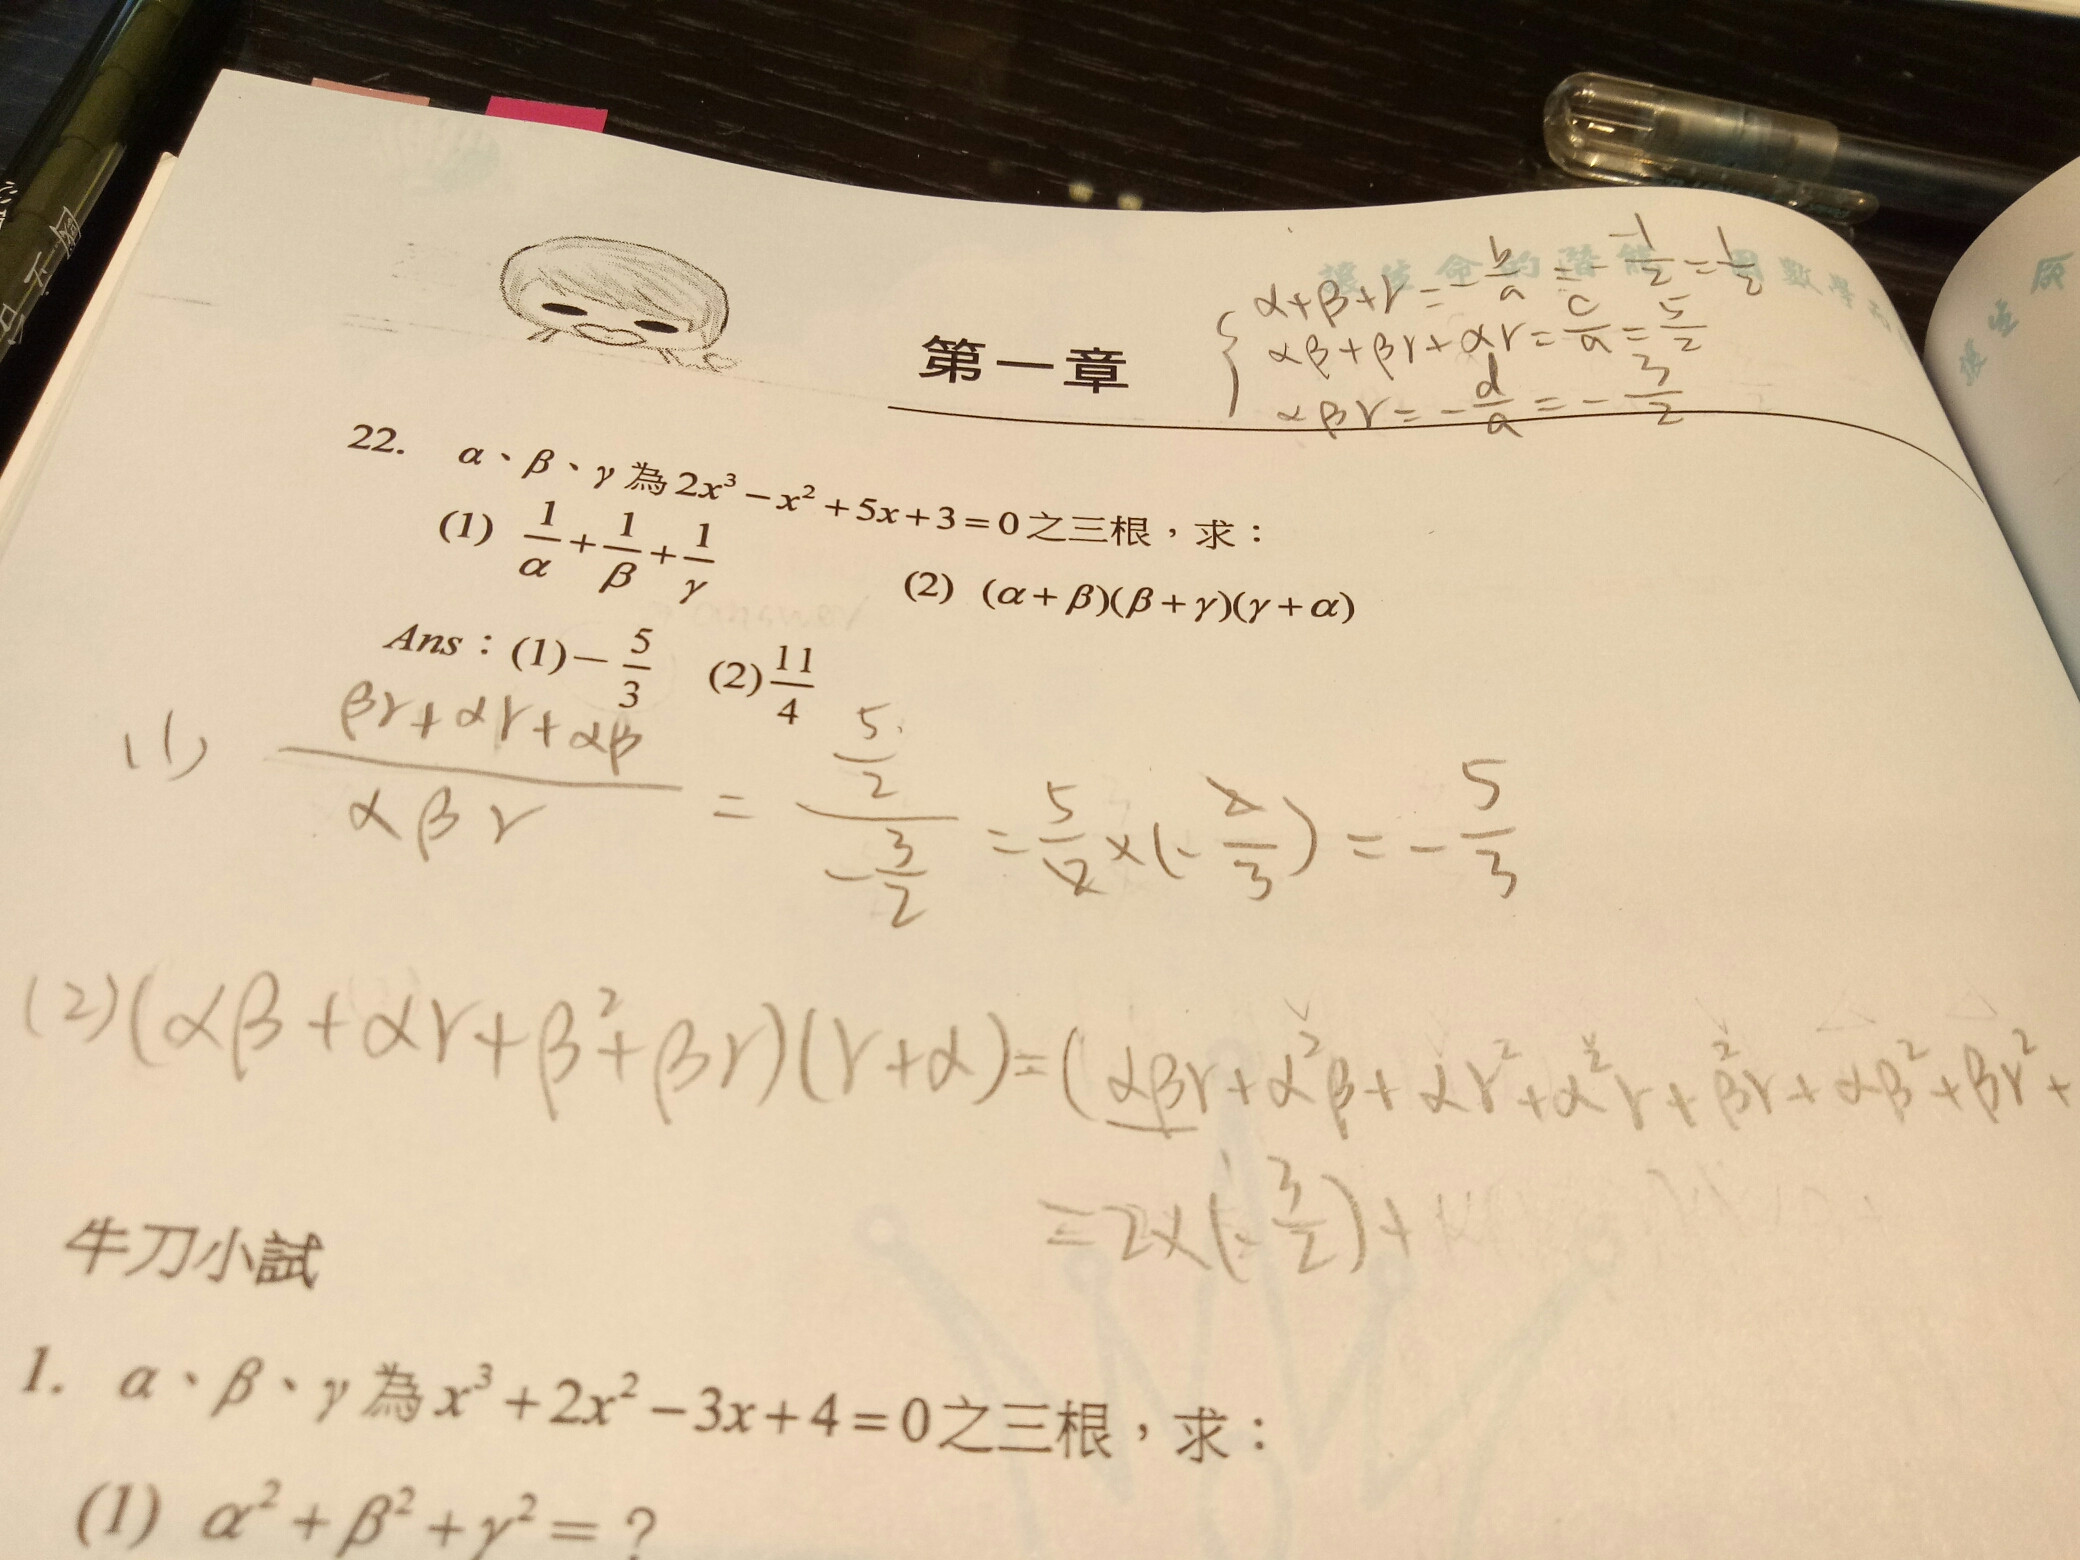 α+β+γ=-b/a=--1/2=1/2
αβ+βγ+αγ=c/a=5/2
第一章
αβγ=-d/a=-3/2
22. α、β、γ為2x³-x²+5x+3=0之三根，求：
(1) 1/α+1/β+1/γ (2) (α+β)(β+γ)(γ+α)
Ans：(1)-5/3 (2)11/4
(1) (βγ+αγ+αβ)/(αβγ) = (5/2)/(-3/2) = 5/2×(-2/3) = -5/3
(2)(αβ+αγ+β²+βγ)(γ+α)=(αβγ+α²β+αγ²+α²γ+β²γ+αβ²+βγ²+
=2×(-3/2)+
牛刀小試
1. α、β、γ為x³+2x²-3x+4=0之三根，求：
(1) α²+β²+γ²=？